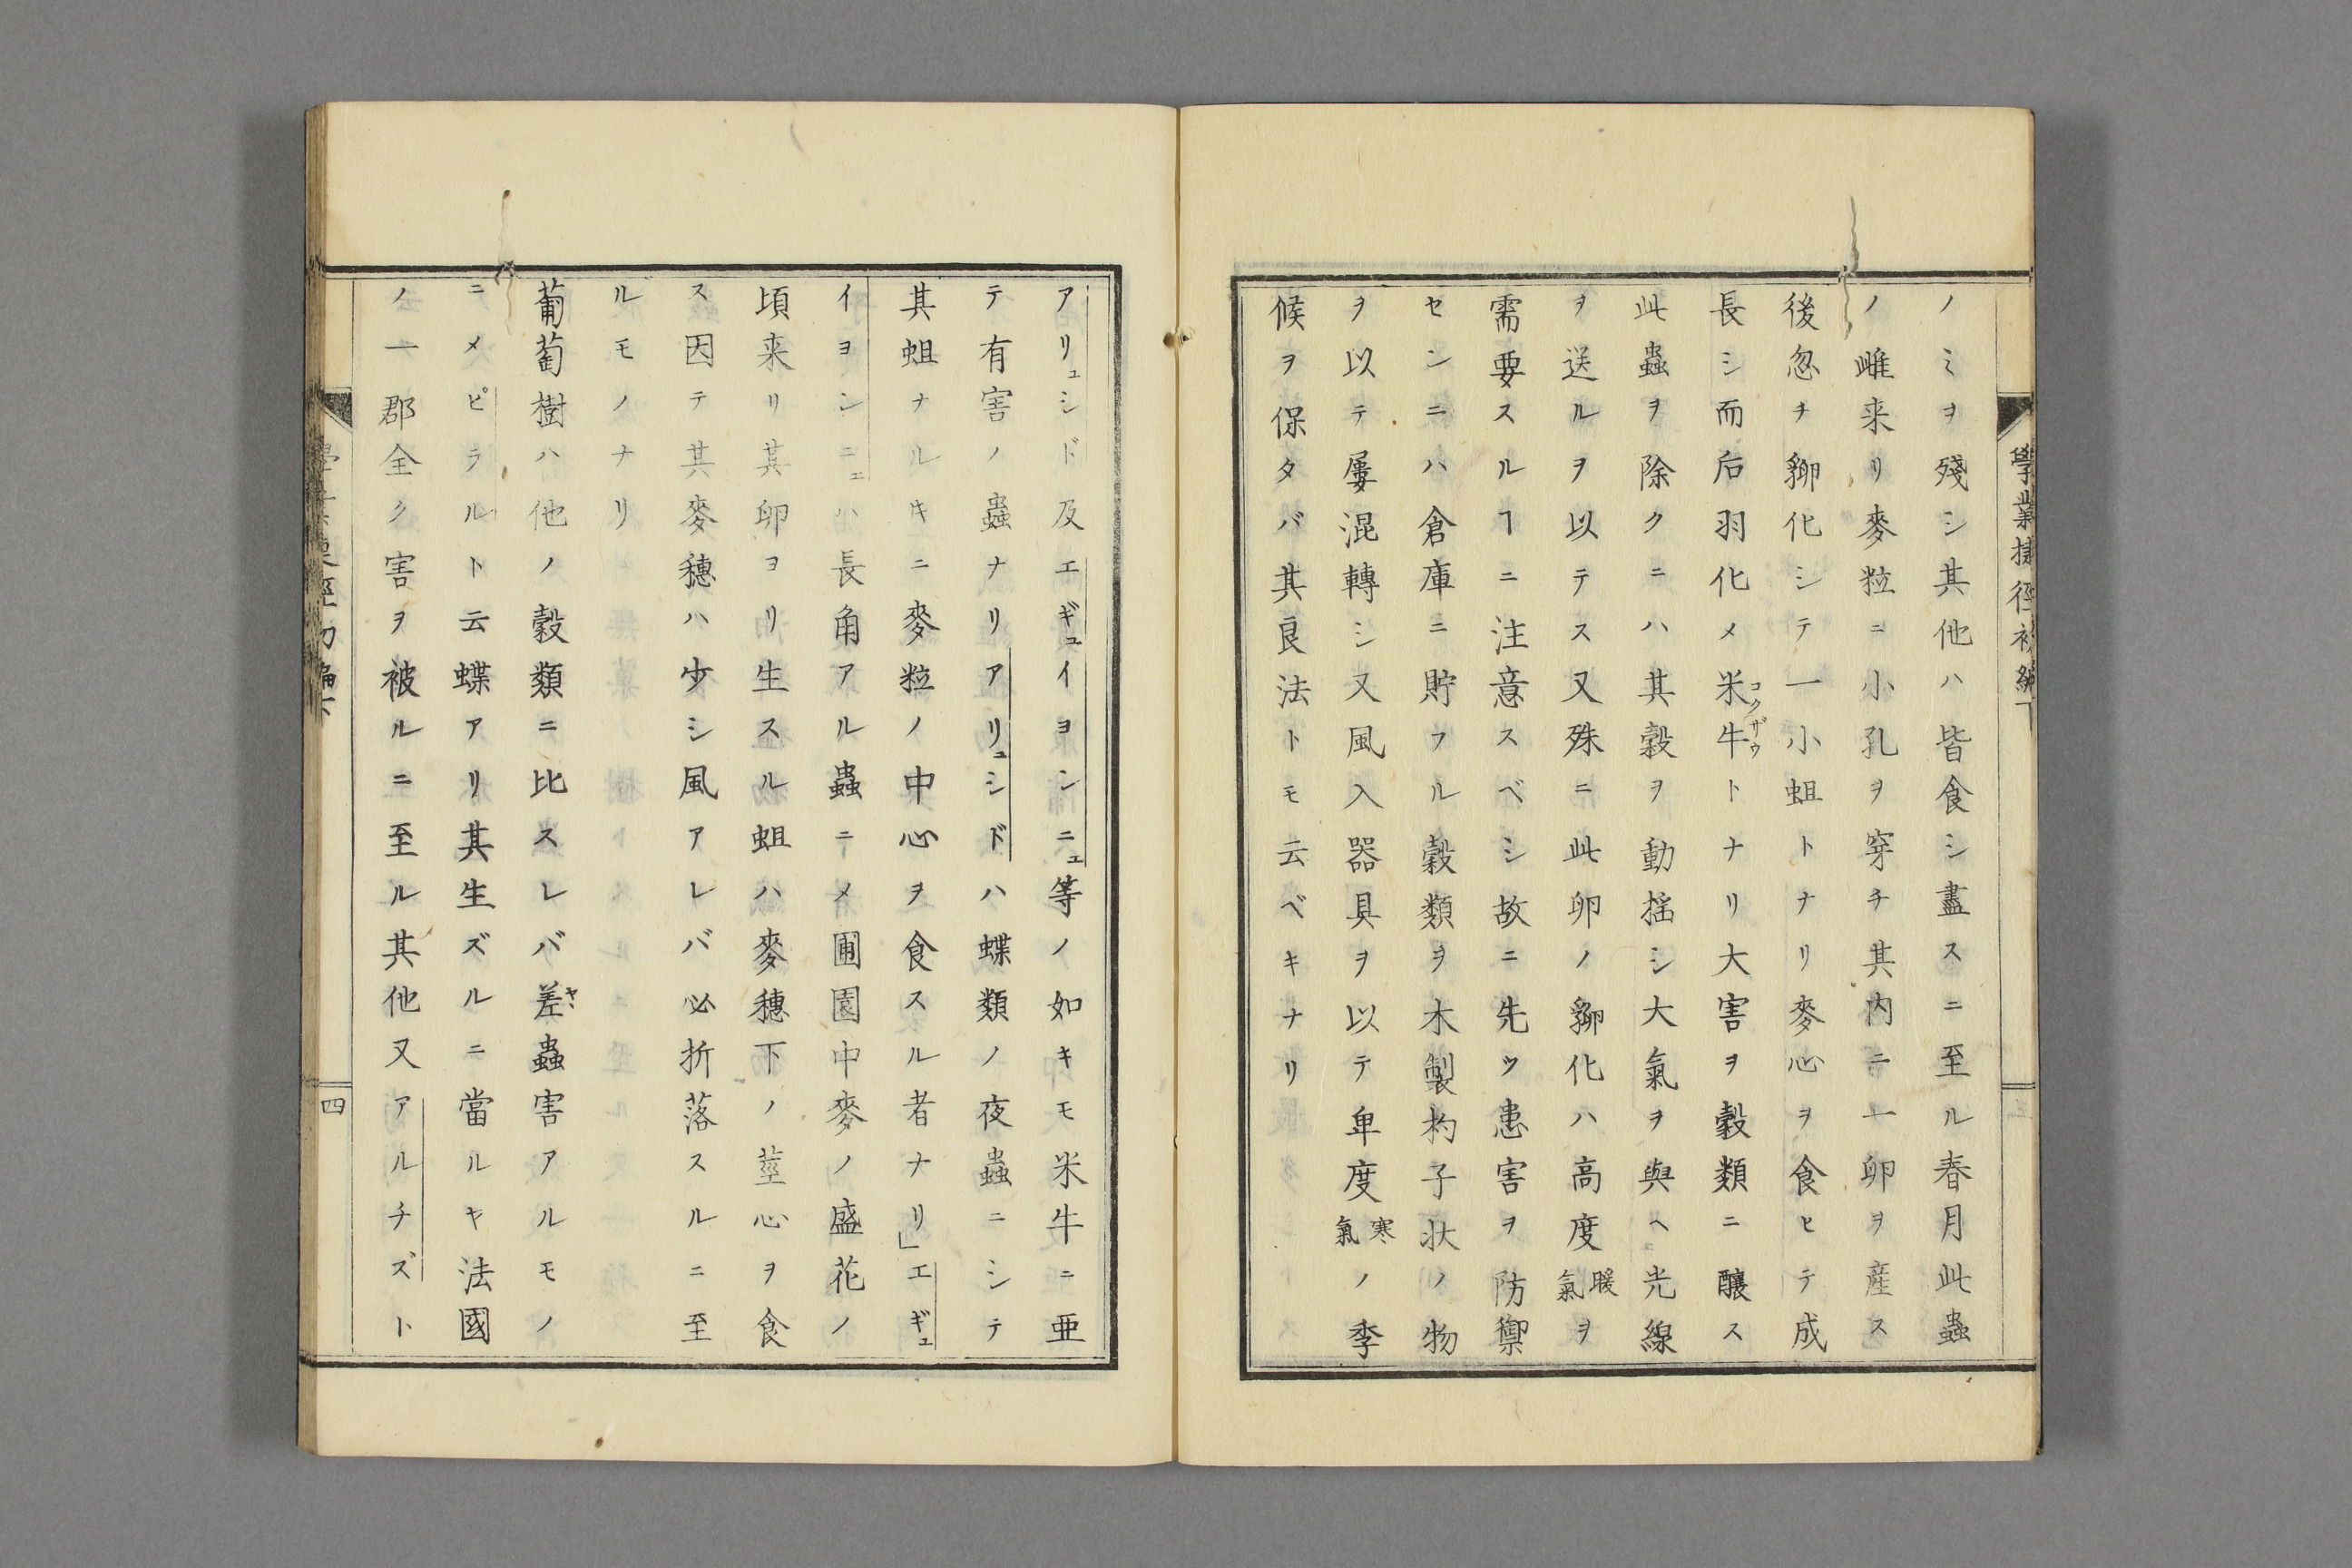 ノミヲ殘シ其他ハ皆食シ盡スニ至ル春月此蟲
ノ雌来リ麥粒ニ小孔ヲ穿チ其内ニ一卵ヲ産ス
後忽チ孵化シテ一小蛆トナリ麥心ヲ食ヒテ成
長シ而后羽化メ米牛トナリ大害ヲ穀類ニ釀ス
コクザウ
此蟲ヲ除クニハ其穀ヲ動揺シ大氣ヲ與ヘ光線
ヲ送ルヲ以テス又殊ニ此卵ノ孵化ハ高度暖氣ヲ
需要スルヿニ注意スベシ故ニ先ツ患害ヲ防禦
センニハ倉庫ニ貯フル穀類ヲ木製杓子状ノ物
ヲ以テ屢混轉シ又風入器具ヲ以テ卑度寒氣ノ季
候ヲ保タバ其良法トモ云ベキナリ
アリュシド及エギュイヨンニェ等ノ如キモ米牛ニ亜
テ有害ノ蟲ナリアリュシドハ蝶類ノ夜蟲ニシテ
其蛆ナルキニ麥粒ノ中心ヲ食スル者ナリ」エギュ
イヨンニェハ長角アル蟲ニメ圃園中麥ノ盛花ノ
頃来リ其卵ヨリ生スル蛆ハ麥穗下ノ莖心ヲ食
ス因テ其麥穗ハ少シ風アレバ必折落スルニ至
ルモノナリ
葡萄樹ハ他ノ穀類ニ比スレバ差蟲害アルモノ
ニメピラルト云蝶アリ其生ズルニ當ルヤ法國
ノ一郡全ク害ヲ被ルニ至ル其他又アルチズト
四